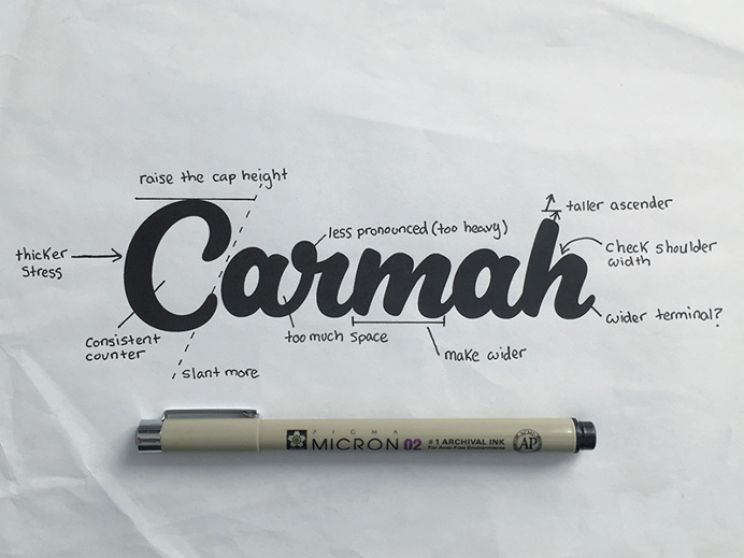 raise the cap height
taller ascender
less pronounced (too heavy)
Carmah
thicker
stress
check shoulder
width
wider terminal?
consistent
counter
too much space
make wider
slant more
SIGMA
MICRON 02
#1 ARCHIVAL INK
For Acid-Free Environments
AP